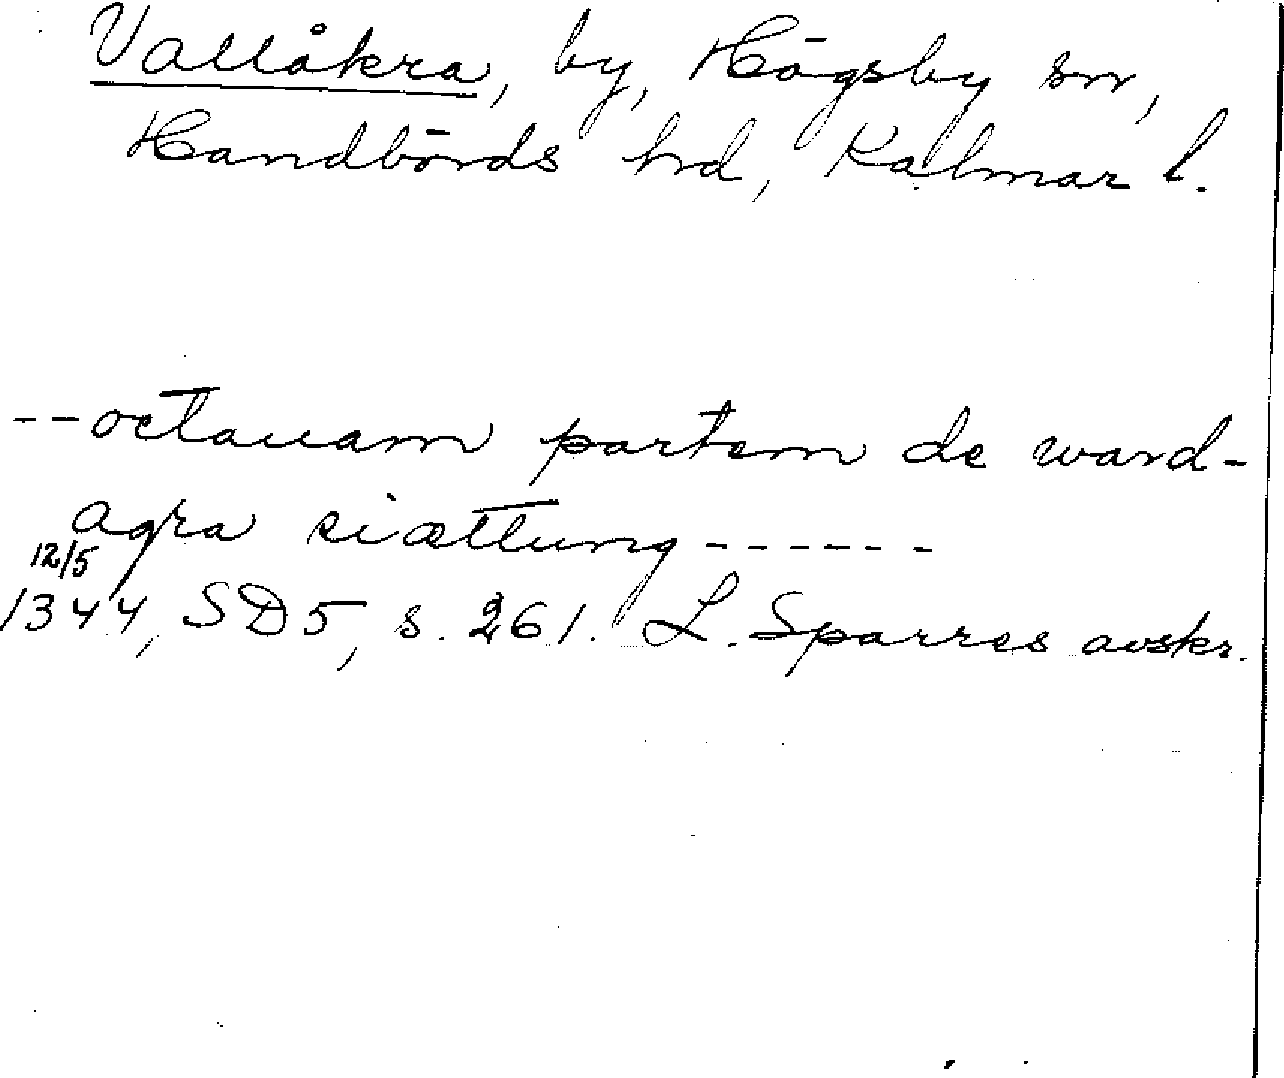 Vallåkra, by, Högsby sn,
Handbörds hd, Kalmar l.
--octauam partem de ward-
agra siættung------
12/5
1344, SD5, s. 261. L. Sparres avskr.